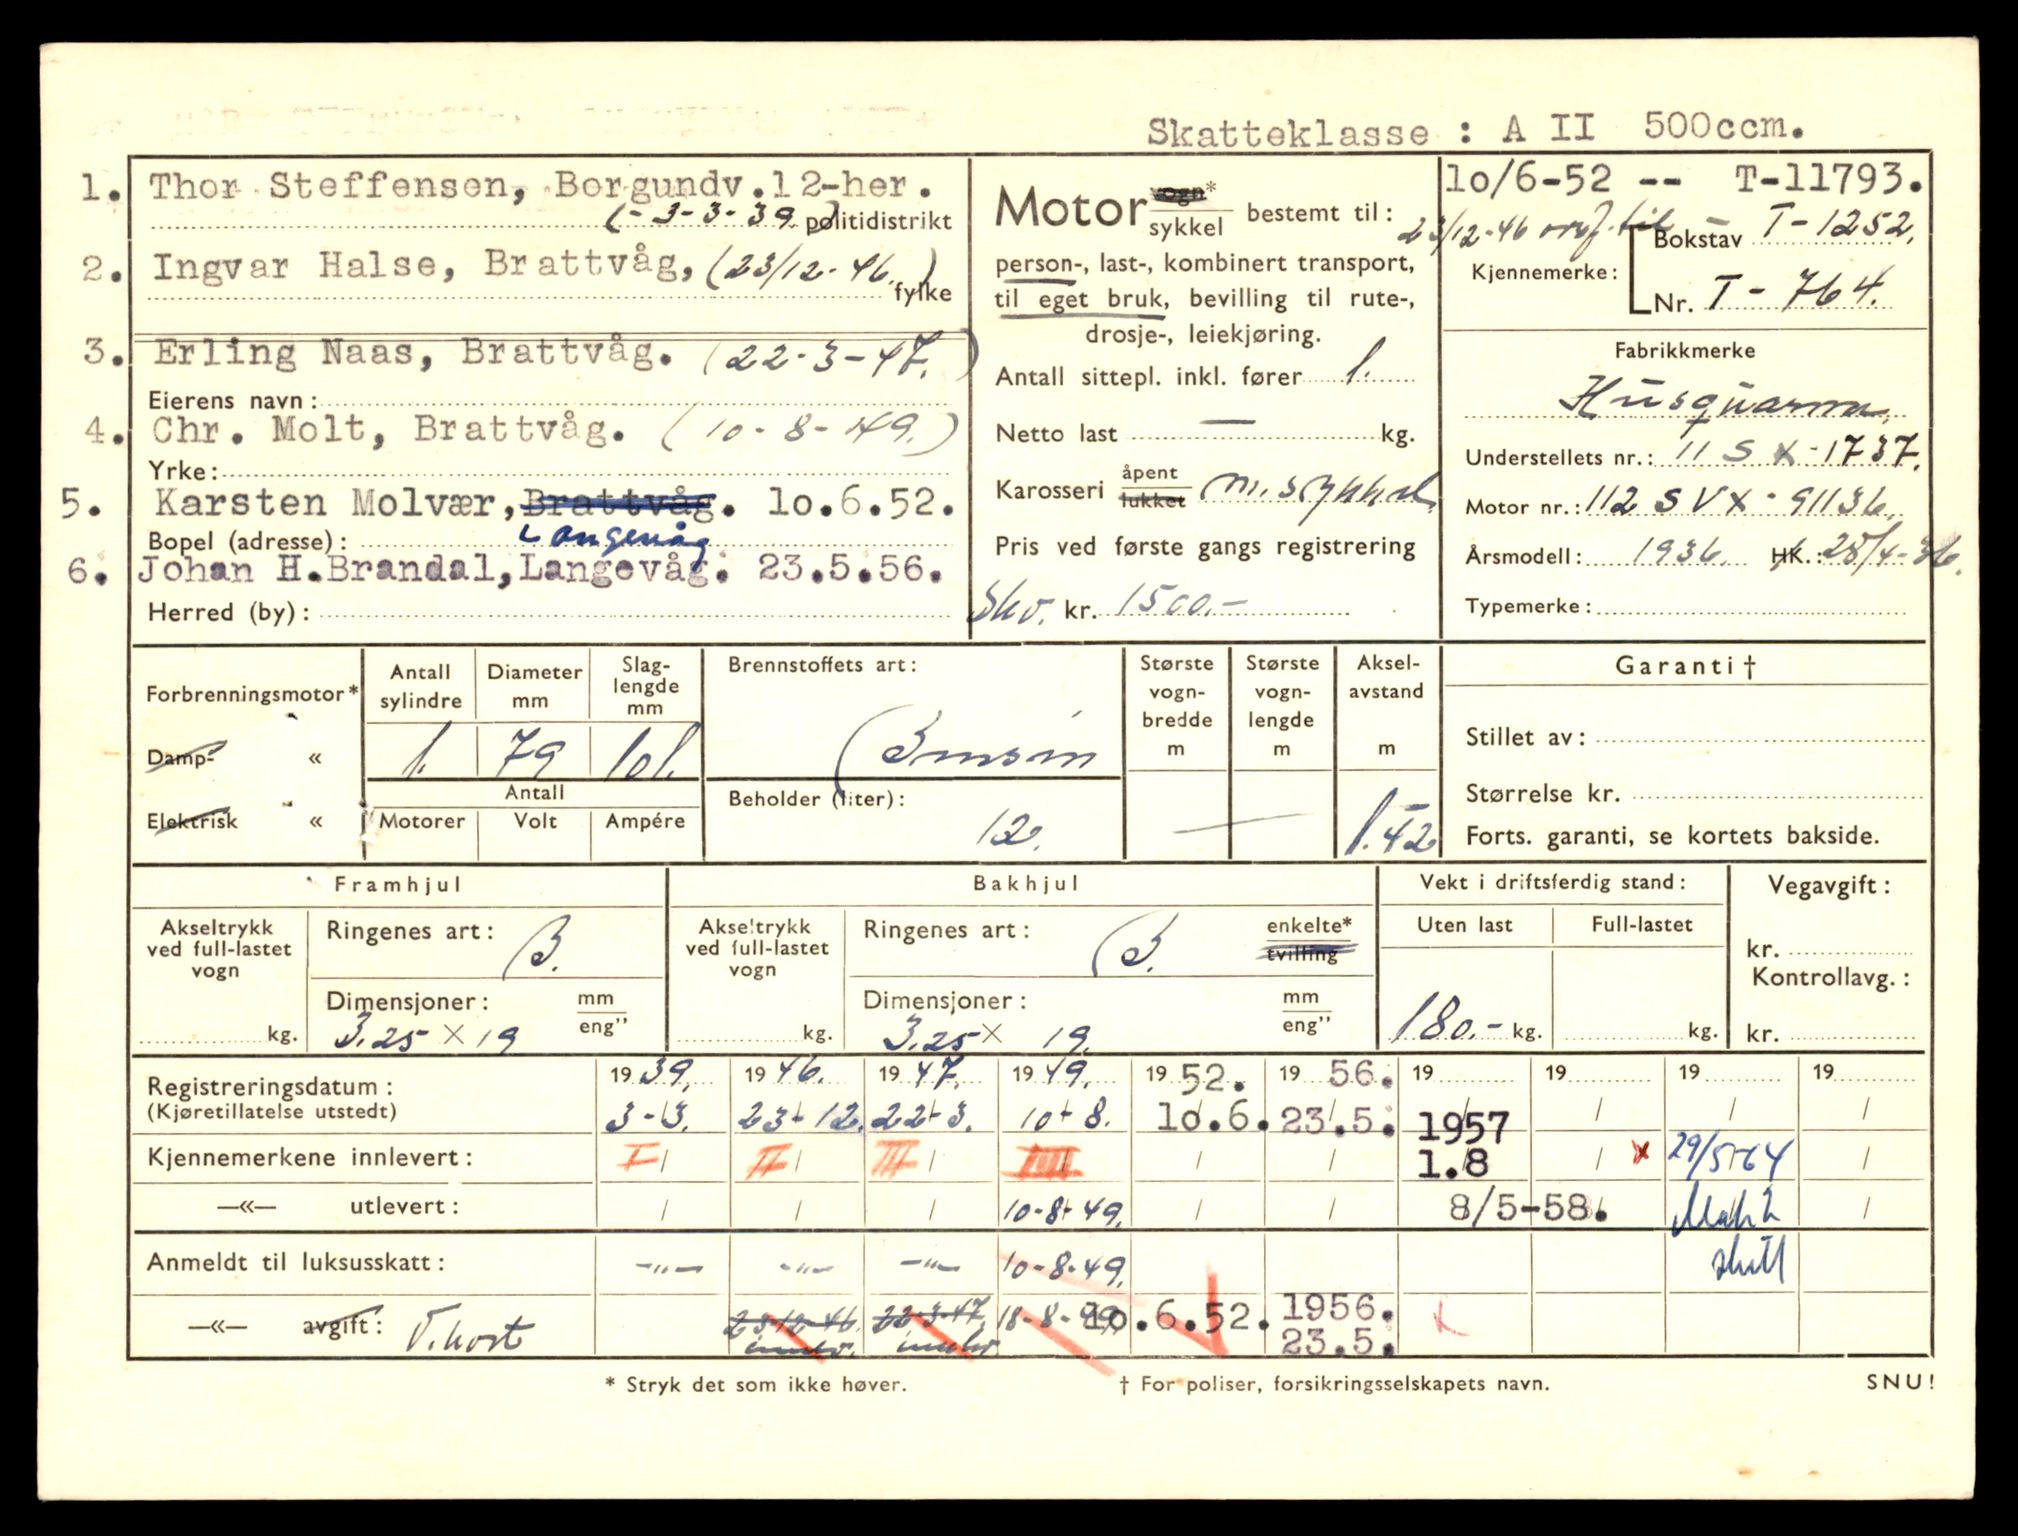 Skatteklasse : A II 500ccm.
1. Thor Steffensen, Borgundv.12-her.
(- 3-3-39.) politidistrikt
2. Ingvar Halse, Brattvåg, (23/12-46.)
fylke
3. Erling Naas, Brattvåg. (22-3-47.)
Eierens navn:
4. Chr. Molt, Brattvåg. (10-8-49.)
Yrke:
5. Karsten Molvær, Brattvåg. 10.6.52.
Bopel (adresse): Langevåg
6. Johan H.Brandal, Langevåg. 23.5.56.
Herred (by):
Motor vogn*
sykkel bestemt til:
person-, last-, kombinert transport,
til eget bruk, bevilling til rute-,
drosje-, leiekjøring.
Antall sittepl. inkl. fører 1.
Netto last — kg.
Karosseri åpent
lukket m. sykkel
Pris ved første gangs registrering
Skv. kr. 1500.-
10/6-52 -- T-11793.
23/12-46 til
Bokstav T-1252.
Kjennemerke:
Nr. T-764.
Fabrikkmerke
Husquarna
Understellets nr.: 11 S X-1737.
Motor nr.: 112 SVX-91136.
Årsmodell: 1936. HK.: 28/4-36.
Typemerke:
Forbrenningsmotor*
Damp- «
Elektrisk «
Antall sylindre
1.
Diameter mm
79
Slag-lengde mm
101.
Antall
Motorer Volt Ampére
Brennstoffets art:
Bensin
Beholder (liter):
12.
Største vogn-bredde m
Største vogn-lengde m
—
Aksel-avstand m
1.42
Garanti †
Stillet av:
Størrelse kr.
Forts. garanti, se kortets bakside.
Framhjul
Akseltrykk ved full-lastet vogn
kg.
Ringenes art: B.
Dimensjoner: mm
eng”
3.25 × 19
Bakhjul
Akseltrykk ved full-lastet vogn
kg.
Ringenes art: B. enkelte*
tvilling
Dimensjoner: mm
eng”
3.25 × 19.
Vekt i driftsferdig stand:
Uten last Full-lastet
180.- kg. kg.
Vegavgift:
kr.
Kontrollavg.:
kr.
Registreringsdatum: 1939. 1946. 1947. 1949. 1952. 1956. 19 19 19 19
(Kjøretillatelse utstedt) 3-3. 23-12. 22-3. 10-8. 10.6. 23.5. 1957
Kjennemerkene innlevert: I II III IIII 1.8 x 29/5-64
—«— utlevert: 10-8-49. 8/5-58.
Anmeldt til luksusskatt: —"— —"— —"— 10-8-49.
—«— avgift: 23-12-46. 22-3-47. 10.6.52. 1956.
23.5.
* Stryk det som ikke høver.
† For poliser, forsikringsselskapets navn.
SNU!